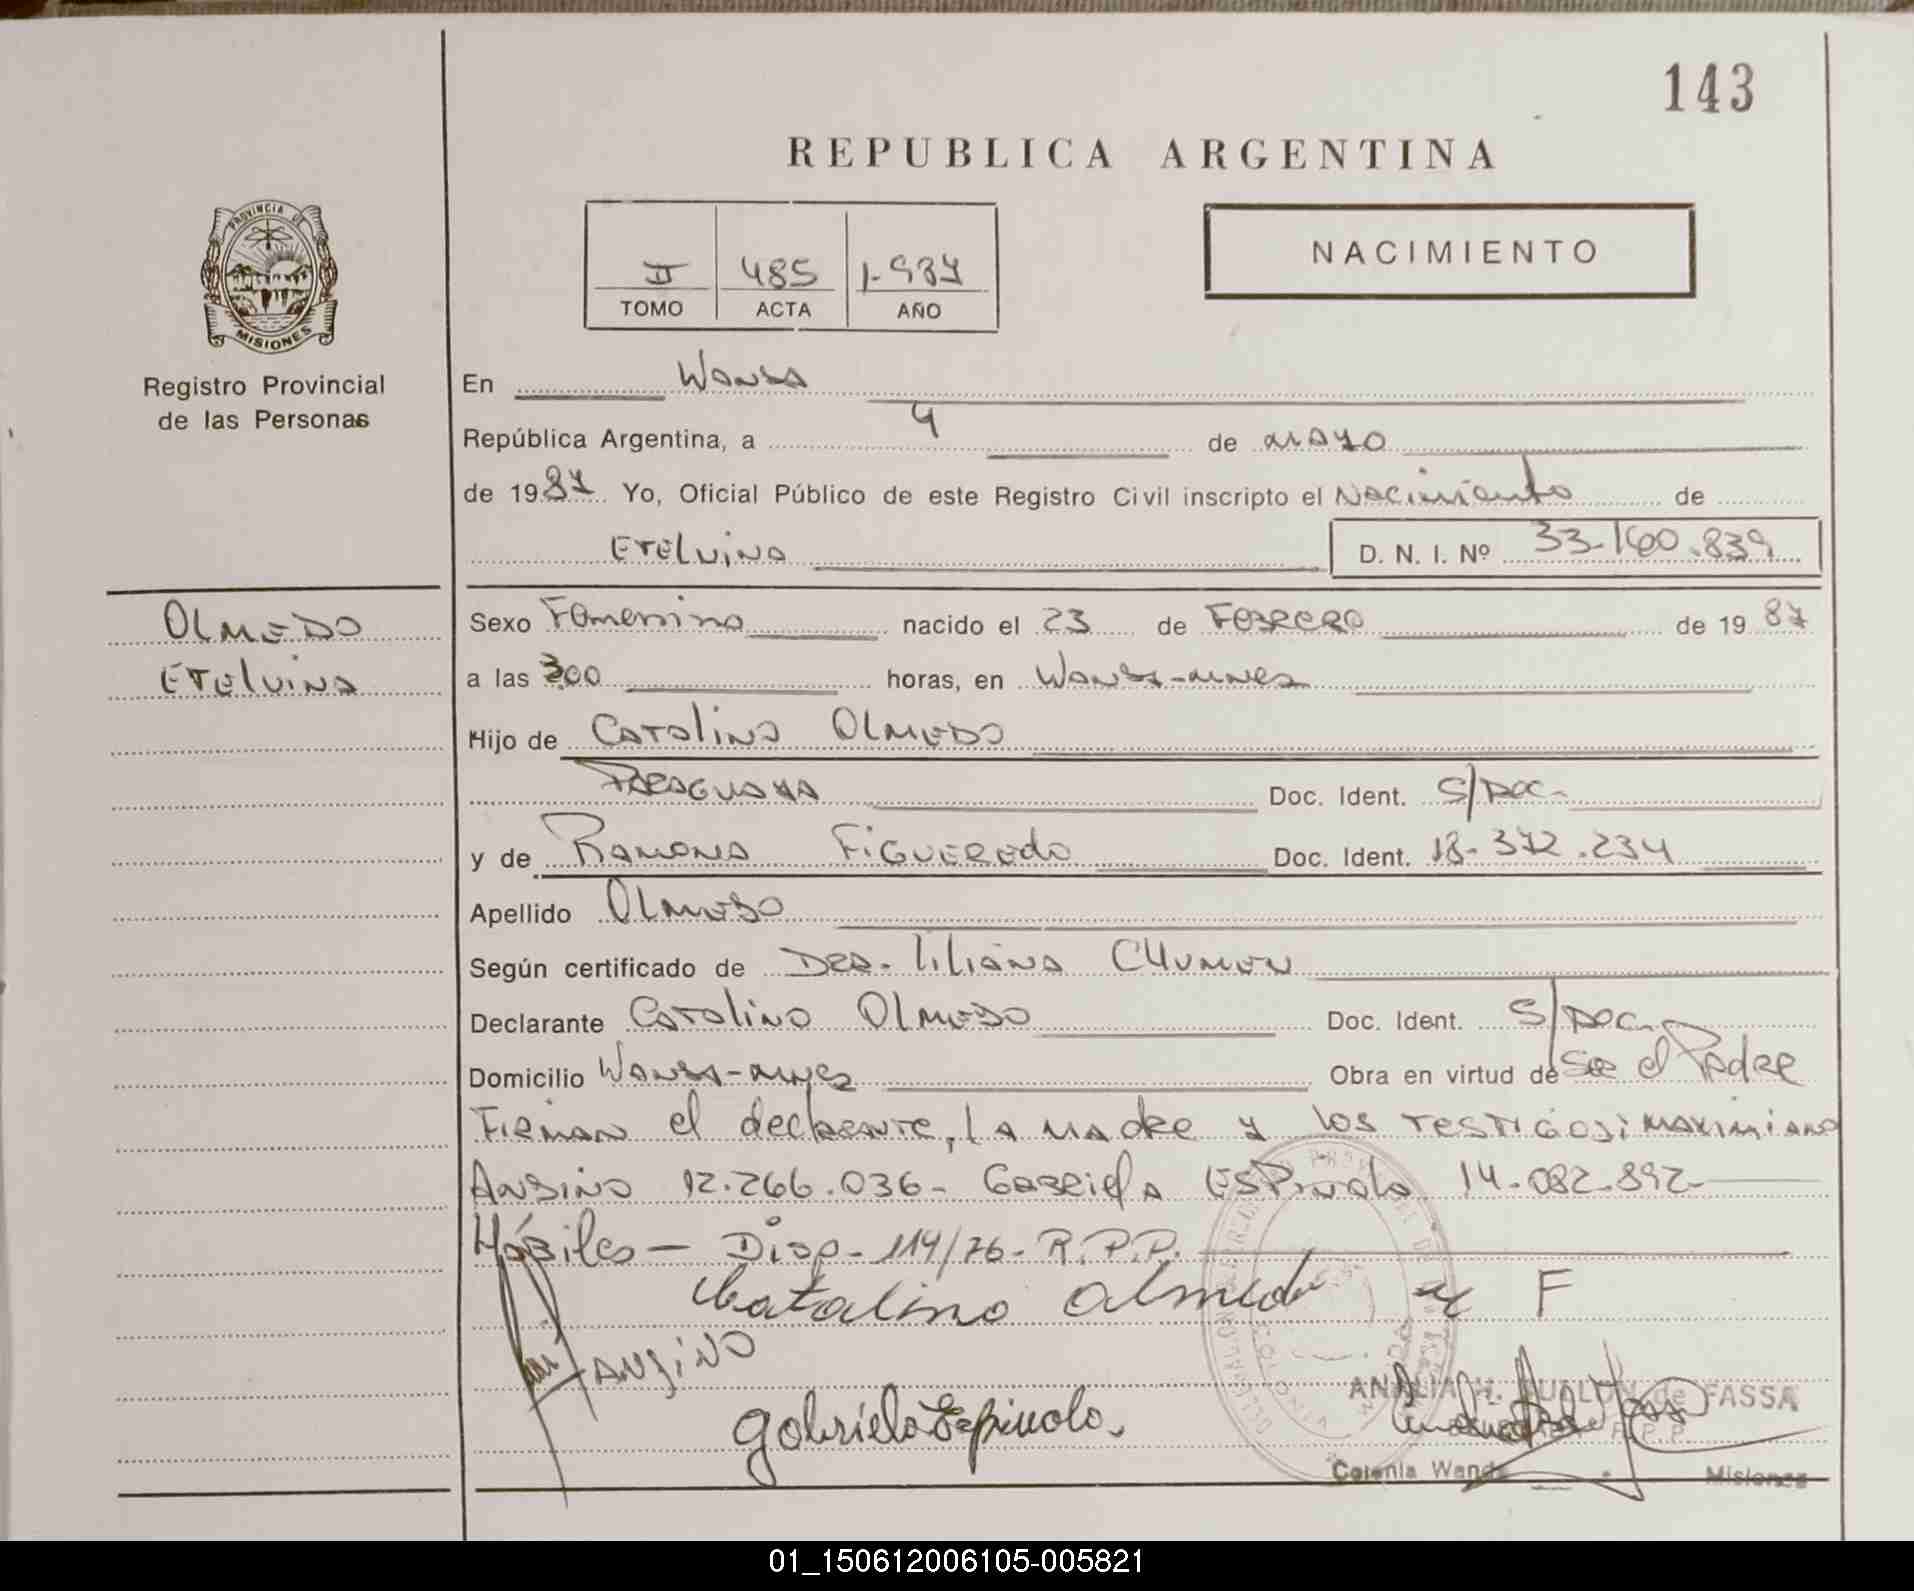 143
REPUBLICA ARGENTINA
PROVINCIA DE
MISIONES
Registro Provincial
de las Personas
II 485 1.987
TOMO ACTA AÑO
NACIMIENTO
En Wanda
República Argentina, a 4 de mayo
de 1987 Yo, Oficial Público de este Registro Civil inscripto el Nacimiento de
Etelvina D. N. I. Nº 33.160.839
OLMEDO
Etelvina
Sexo Femenino nacido el 23 de Febrero de 1987
a las 3,00 horas, en Wanda-mnes
Hijo de Catalino Olmedo
Paraguaya Doc. Ident. S/Doc.
y de Ramona Figueredo Doc. Ident. 18.372.234
Apellido Olmedo
Según certificado de Dra. Liliana Chumen
Declarante Catalino Olmedo Doc. Ident. S/Doc.
Domicilio Wanda-mnes Obra en virtud de Ser el Padre
Firman el declarante, la madre y los testigos: Maximiano
Andino 12.266.036- Gabriela Espinola 14.082.892-
Hábiles - Disp. 114/76- R.P.P.
Catalino Olmedo F
Andino
Gabriela Espinola
ANALIA H. de FASSA
R.P.P.
Colonia Wanda Misiones
01_150612006105-005821